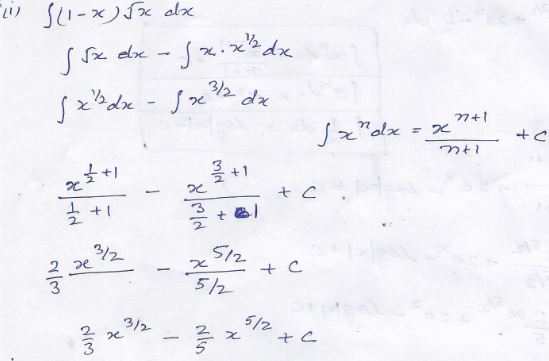 (i) ∫(1-x)√x dx
∫√x dx - ∫x·x^1/2 dx
∫x^1/2 dx - ∫x^3/2 dx
∫x^n dx = x^(n+1)/(n+1) + c
x^(1/2+1)/(1/2+1) - x^(3/2+1)/(3/2+1) + c.
2/3 x^3/2 - x^5/2/(5/2) + c
2/3 x^3/2 - 2/5 x^5/2 + c